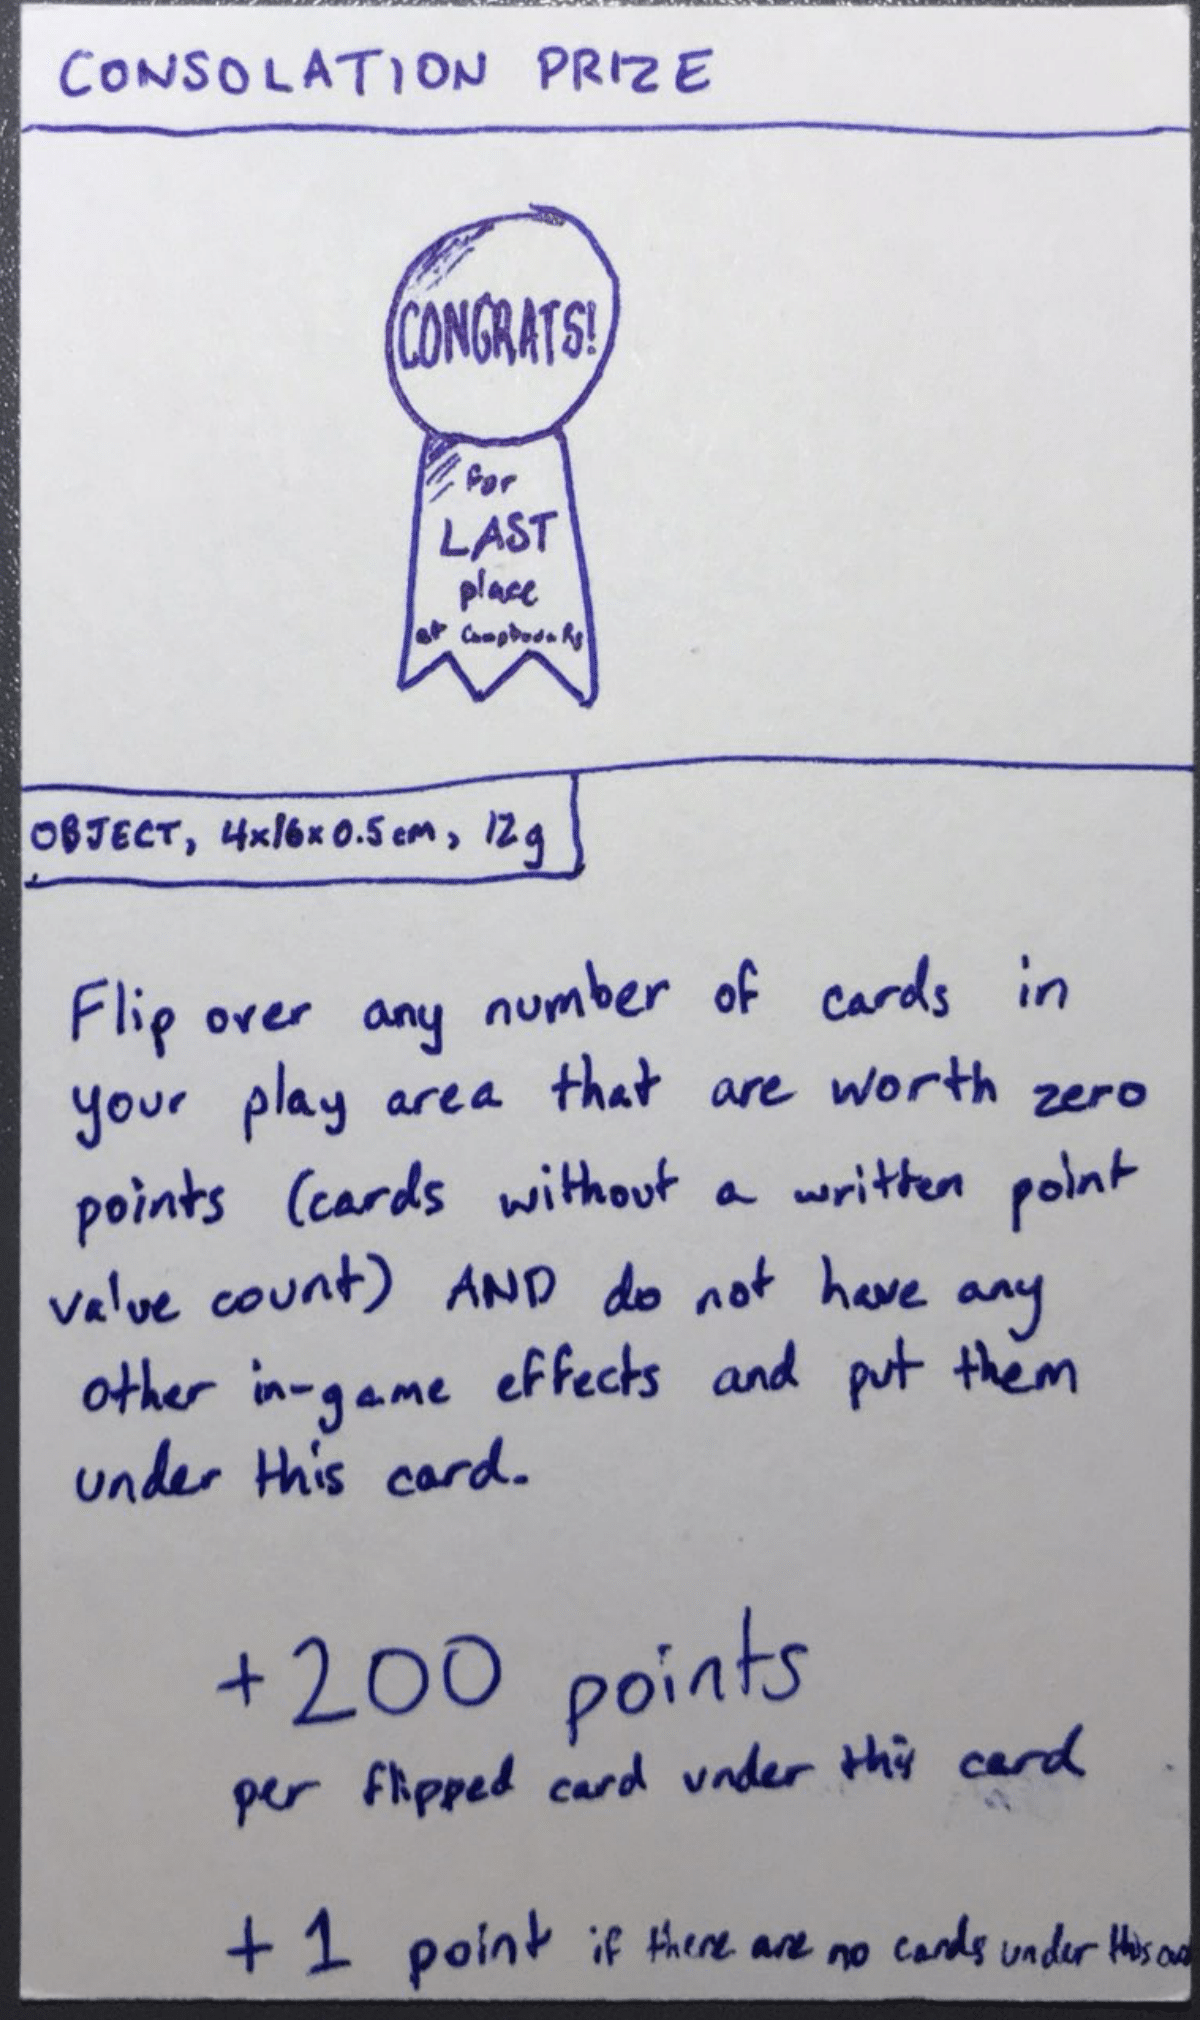 CONSOLATION PRIZE
CONGRATS!
for
LAST
place
at
OBJECT, 4x16x0.5cm, 12g
Flip over any number of cards in
your play area that are worth zero
points (cards without a written point
value count) AND do not have any
other in-game effects and put them
under this card.
+200 points
per flipped card under this card
+1 point if there are no cards under this card